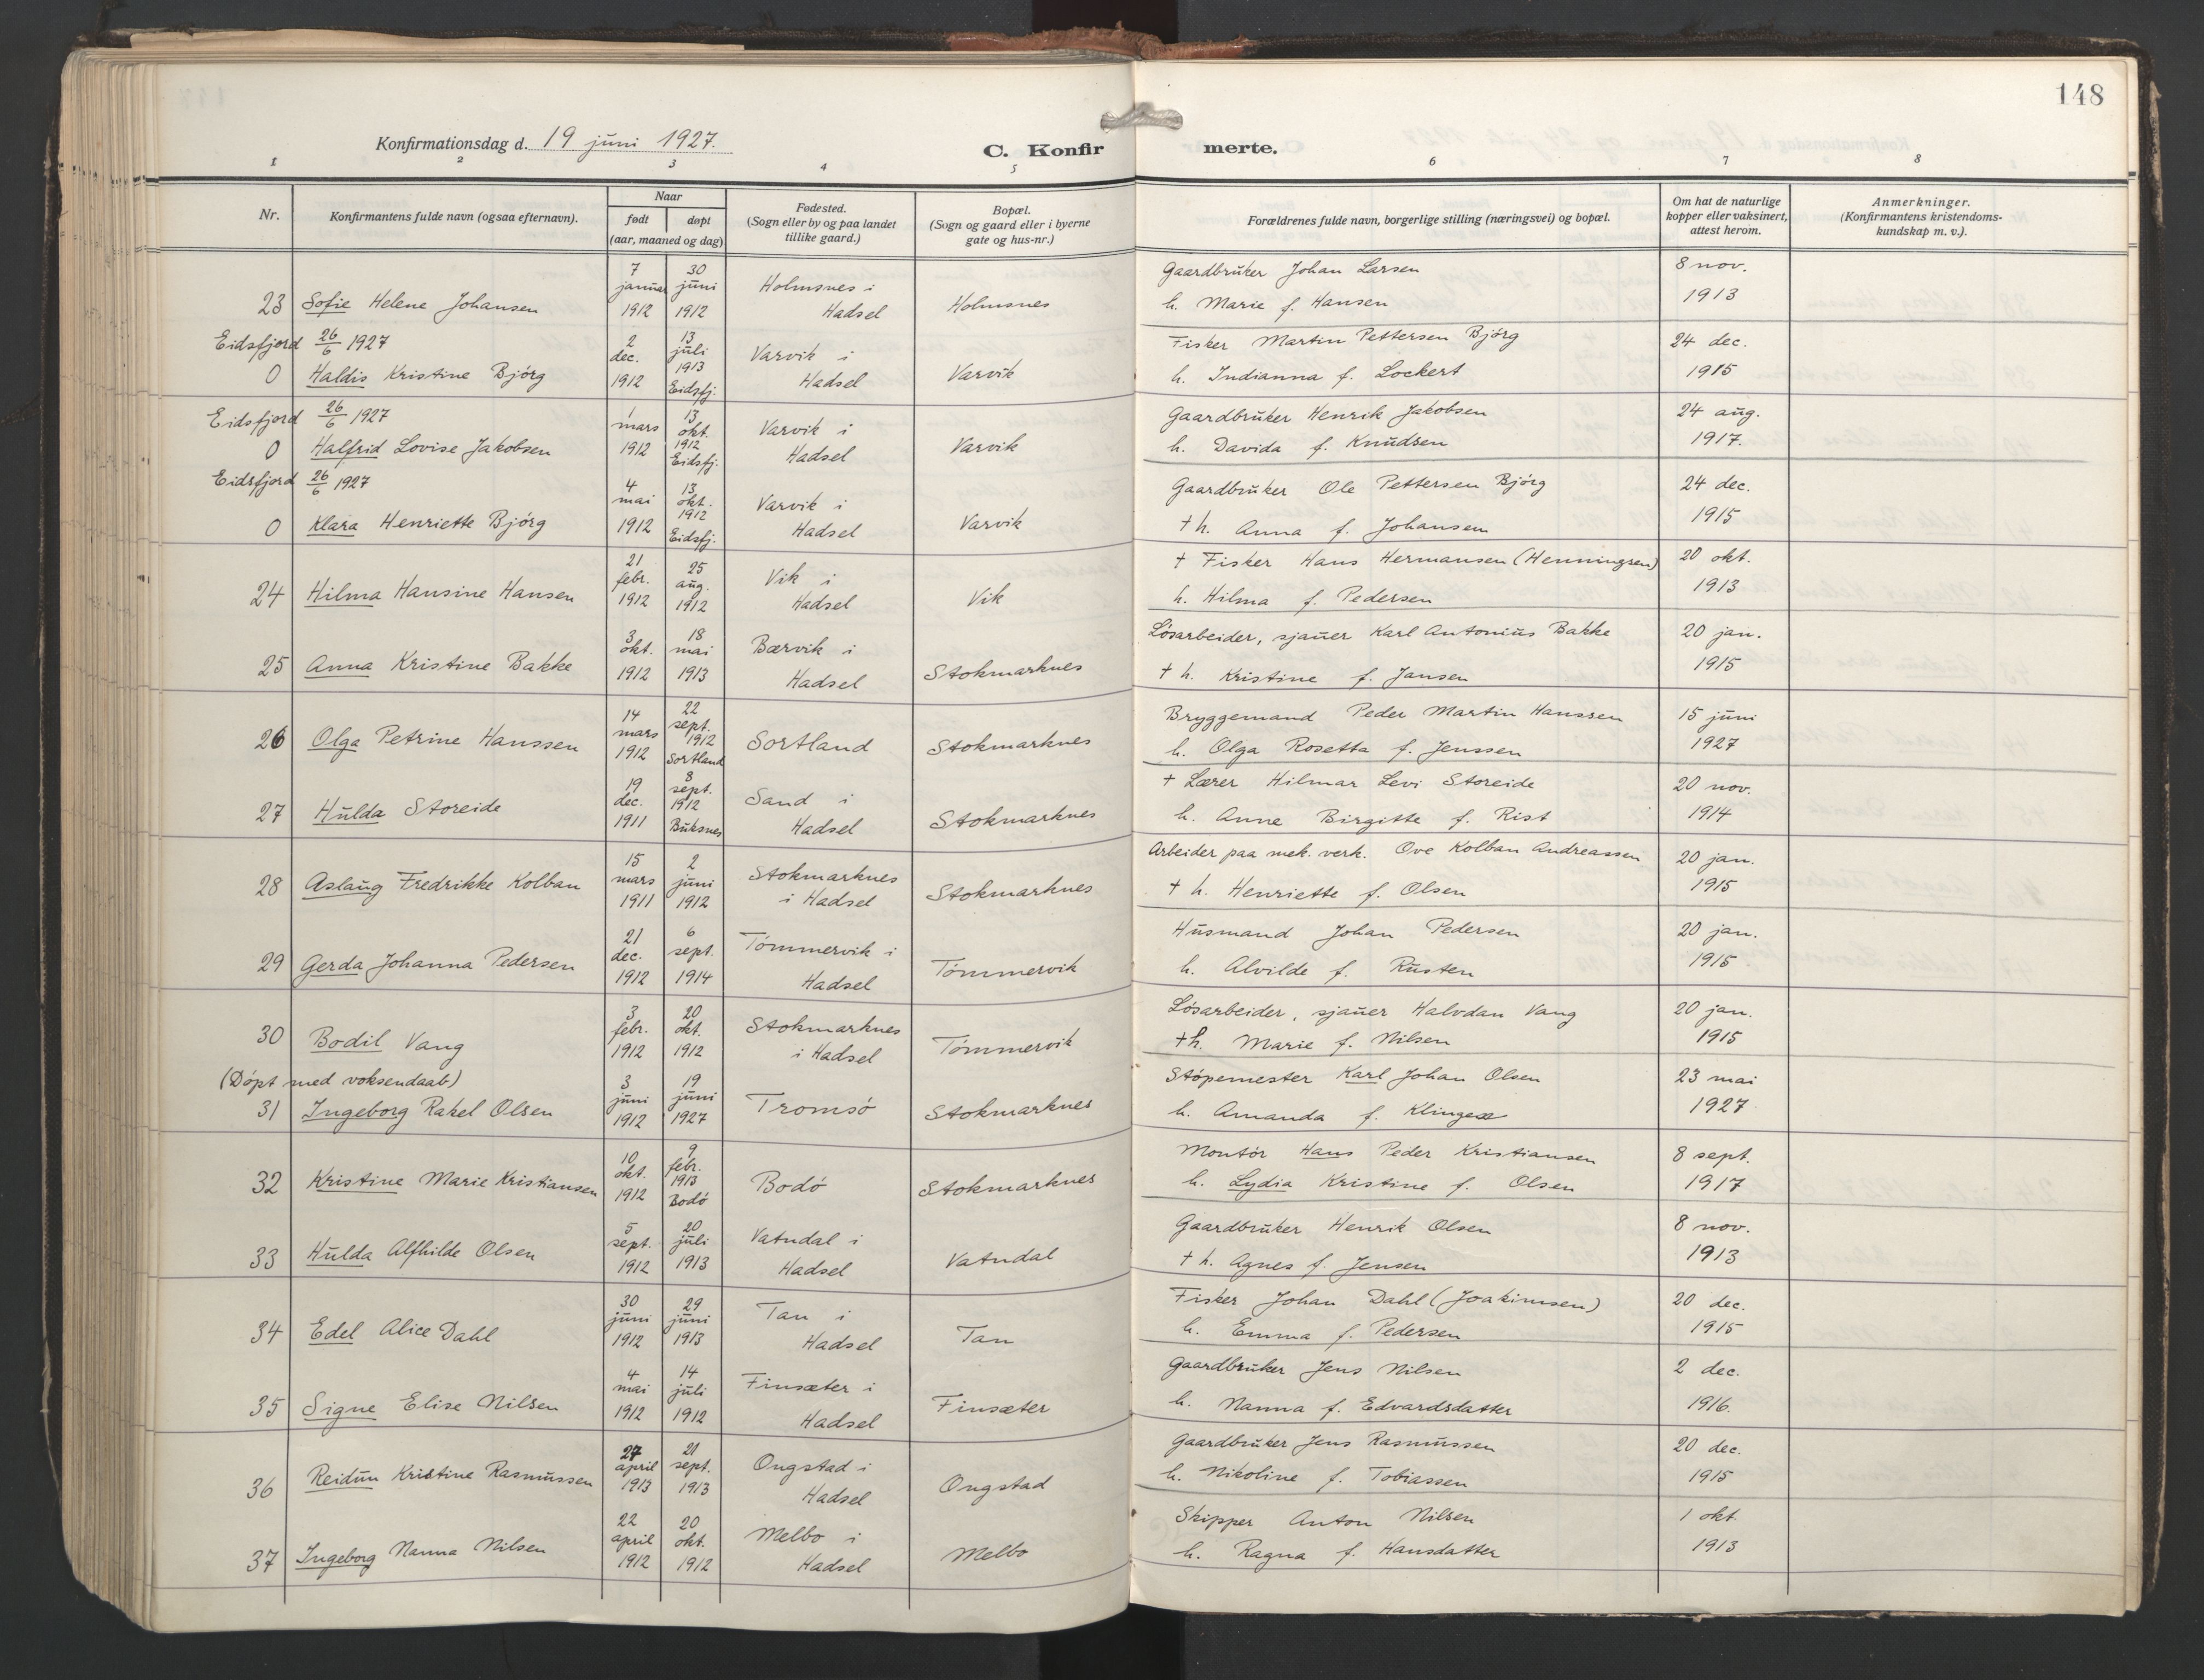 148
Konfirmationsdag d. 19 juni 1927.
C. Konfirmerte.
1 2 3 4 5 6 7 8
Nr.
Konfirmantens fulde navn (ogsaa efternavn).
Naar
født
døpt
(aar, maaned og dag)
Fødested.
(Sogn eller by og paa landet
tillike gaard.)
Bopæl.
(Sogn og gaard eller i byerne
gate og hus-nr.)
Forældrenes fulde navn, borgerlige stilling (næringsvei) og bopæl.
Om hat de naturlige
kopper eller vaksinert,
attest herom.
Anmerkninger.
(Konfirmantens kristendoms-
kundskap m. v.).
23 Sofie Helene Johansen
7 januar 1912
30 juni 1912
Holmsnes i Hadsel
Holmsnes
Gaardbruker Johan Larsen
h. Marie f. Hansen
8 nov. 1913
Eidsfjord 26/6 1927
0 Haldis Kristine Bjórg
2 dec. 1912
13 juli 1913 Eidsfj.
Varvik i Hadsel
Varvik
Fisker Martin Pettersen Bjórg
h. Indianna f. Lockert
24 dec. 1915
Eidsfjord 26/6 1927
0 Halfrid Lovise Jakobsen
1 mars 1912
13 okt. 1912 Eidsfj.
Varvik i Hadsel
Varvik
Gaardbruker Henrik Jakobsen
h. Davida f. Knudsen
24 aug. 1917.
Eidsfjord 26/6 1927
0 Klara Henriette Bjórg
4 mai 1912
13 okt. 1912 Eidsfj.
Varvik i Hadsel
Varvik
Gaardbruker Ole Pettersen Bjórg
+ h. Anna f. Johansen
24 dec. 1915
24 Hilma Hansine Hansen
21 febr. 1912
25 aug. 1912
Vik i Hadsel
Vik
+ Fisker Hans Hermansen (Henningsen)
h. Hilma f. Pedersen
20 okt. 1913
25 Anna Kristine Bakke
3 okt. 1912
18 mai 1913
Bærvik i Hadsel
Stokmarknes
Lósarbeider, sjauer Karl Antonius Bakke
+ h. Kristine f. Jansen
20 jan. 1915
26 Olga Petrine Hanssen
14 mars 1912
22 sept. 1912 Sortland
Sortland
Stokmarknes
Bryggemand Peder Martin Hanssen
h. Olga Rosetta f. Jenssen
15 juni 1927
27 Hulda Storeide
19 dec. 1911
8 sept. 1912 Buksnes
Sand i Hadsel
Stokmarknes
+ Lærer Hilmar Levi Storeide
h. Anne Birgitte f. Rist
20 nov. 1914
28 Aslaug Fredrikke Kolban
15 mars 1911
2 juni 1912
Stokmarknes i Hadsel
Stokmarknes
Arbeider paa mek. verk. Ove Kolban Andreassen
+ h. Henriette f. Olsen
20 jan. 1915
29 Gerda Johanna Pedersen
21 dec. 1912
6 sept. 1914
Tómmervik i Hadsel
Tómmervik
Husmand Johan Pedersen
h. Alvilde f. Rusten
20 jan. 1915
30 Bodil Vang
3 febr. 1912
20 okt. 1912
Stokmarknes i Hadsel
Tómmervik
Lósarbeider, sjauer Halvdan Vang
+ h. Marie f. Nilsen
20 jan. 1915
(Dópt med voksendaab)
31 Ingeborg Rakel Olsen
3 juni 1912
19 juni 1927
Tromsó
Stokmarknes
Stópemester Karl Johan Olsen
h. Amanda f.
23 mai 1927
32 Kristine Marie Kristiansen
10 okt. 1912
9 febr. 1913 Bodó
Bodó
Stokmarknes
Montór Hans Peder Kristiansen
h. Lydia Kristine f. Olsen
8 sept. 1917
33 Hulda Alfhilde Olsen
5 sept. 1912
20 juli 1913
Vatndal i Hadsel
Vatndal
Gaardbruker Henrik Olsen
+ h. Agnes f. Jensen
8 nov. 1913
34 Edel Alice Dahl
30 juni 1912
29 juni 1913
Tan i Hadsel
Tan
Fisker Johan Dahl (Joakimsen)
h. Emma f. Pedersen
20 dec. 1915
35 Signe Elise Nilsen
4 mai 1912
14 juli 1912
Finsæter i Hadsel
Finsæter
Gaardbruker Jens Nilsen
h. Nanna f. Edvardsdatter
2 dec. 1916.
36 Reidun Kristine Rasmussen
27 april 1913
21 sept. 1913
Ongstad i Hadsel
Ongstad
Gaardbruker Jens Rasmussen
h. Nikoline f. Tobiassen
20 dec. 1915
37 Ingeborg Nanna Nilsen
22 april 1912
20 okt. 1912
Melbo i Hadsel
Melbo
Skipper Anton Nilsen
h. Ragna f. Hansdatter
1 okt. 1913